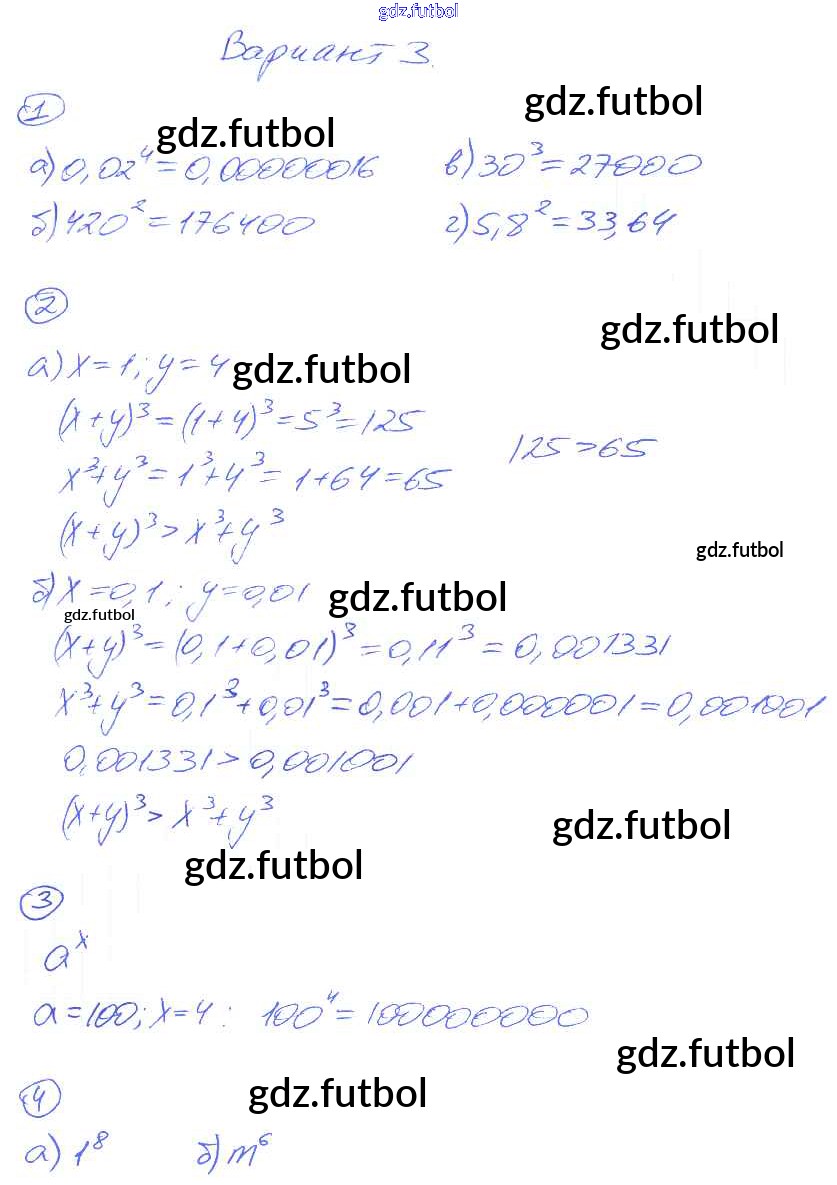 gdz.futbol
Вариант 3.
1
gdz.futbol
gdz.futbol
а) 0,02⁴ = 0,00000016
в) 30³ = 27000
б) 420² = 176400
г) 5,8² = 33,64
2
gdz.futbol
а) x = 1; y = 4
gdz.futbol
(x+y)³ = (1+4)³ = 5³ = 125
x³+y³ = 1³+4³ = 1+64 = 65
125 > 65
(x+y)³ > x³+y³
gdz.futbol
б) x = 0,1; y = 0,01
gdz.futbol
gdz.futbol
(x+y)³ = (0,1+0,01)³ = 0,11³ = 0,001331
x³+y³ = 0,1³+0,01³ = 0,001+0,000001 = 0,001001
0,001331 > 0,001001
(x+y)³ > x³+y³
gdz.futbol
gdz.futbol
3
aˣ
a = 100; x = 4: 100⁴ = 100000000
gdz.futbol
4
gdz.futbol
а) 1⁸
б) m⁶